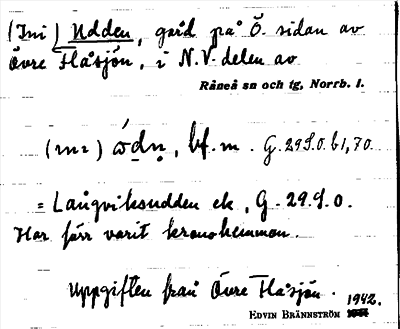 (Ini) Udden, gård på Ö. sidan av
Övre Flåsjön, i N.V. delen av
Råneå sn och tg, Norrb. l.
bf. m. G. 29 S. O. b1, 70.
= Långviksudden ek, G. 29. S. O.
Har förr varit kronohemman.
Uppgiften från Övre Flåsjön. 1942.
EDVIN BRÄNNSTRÖM